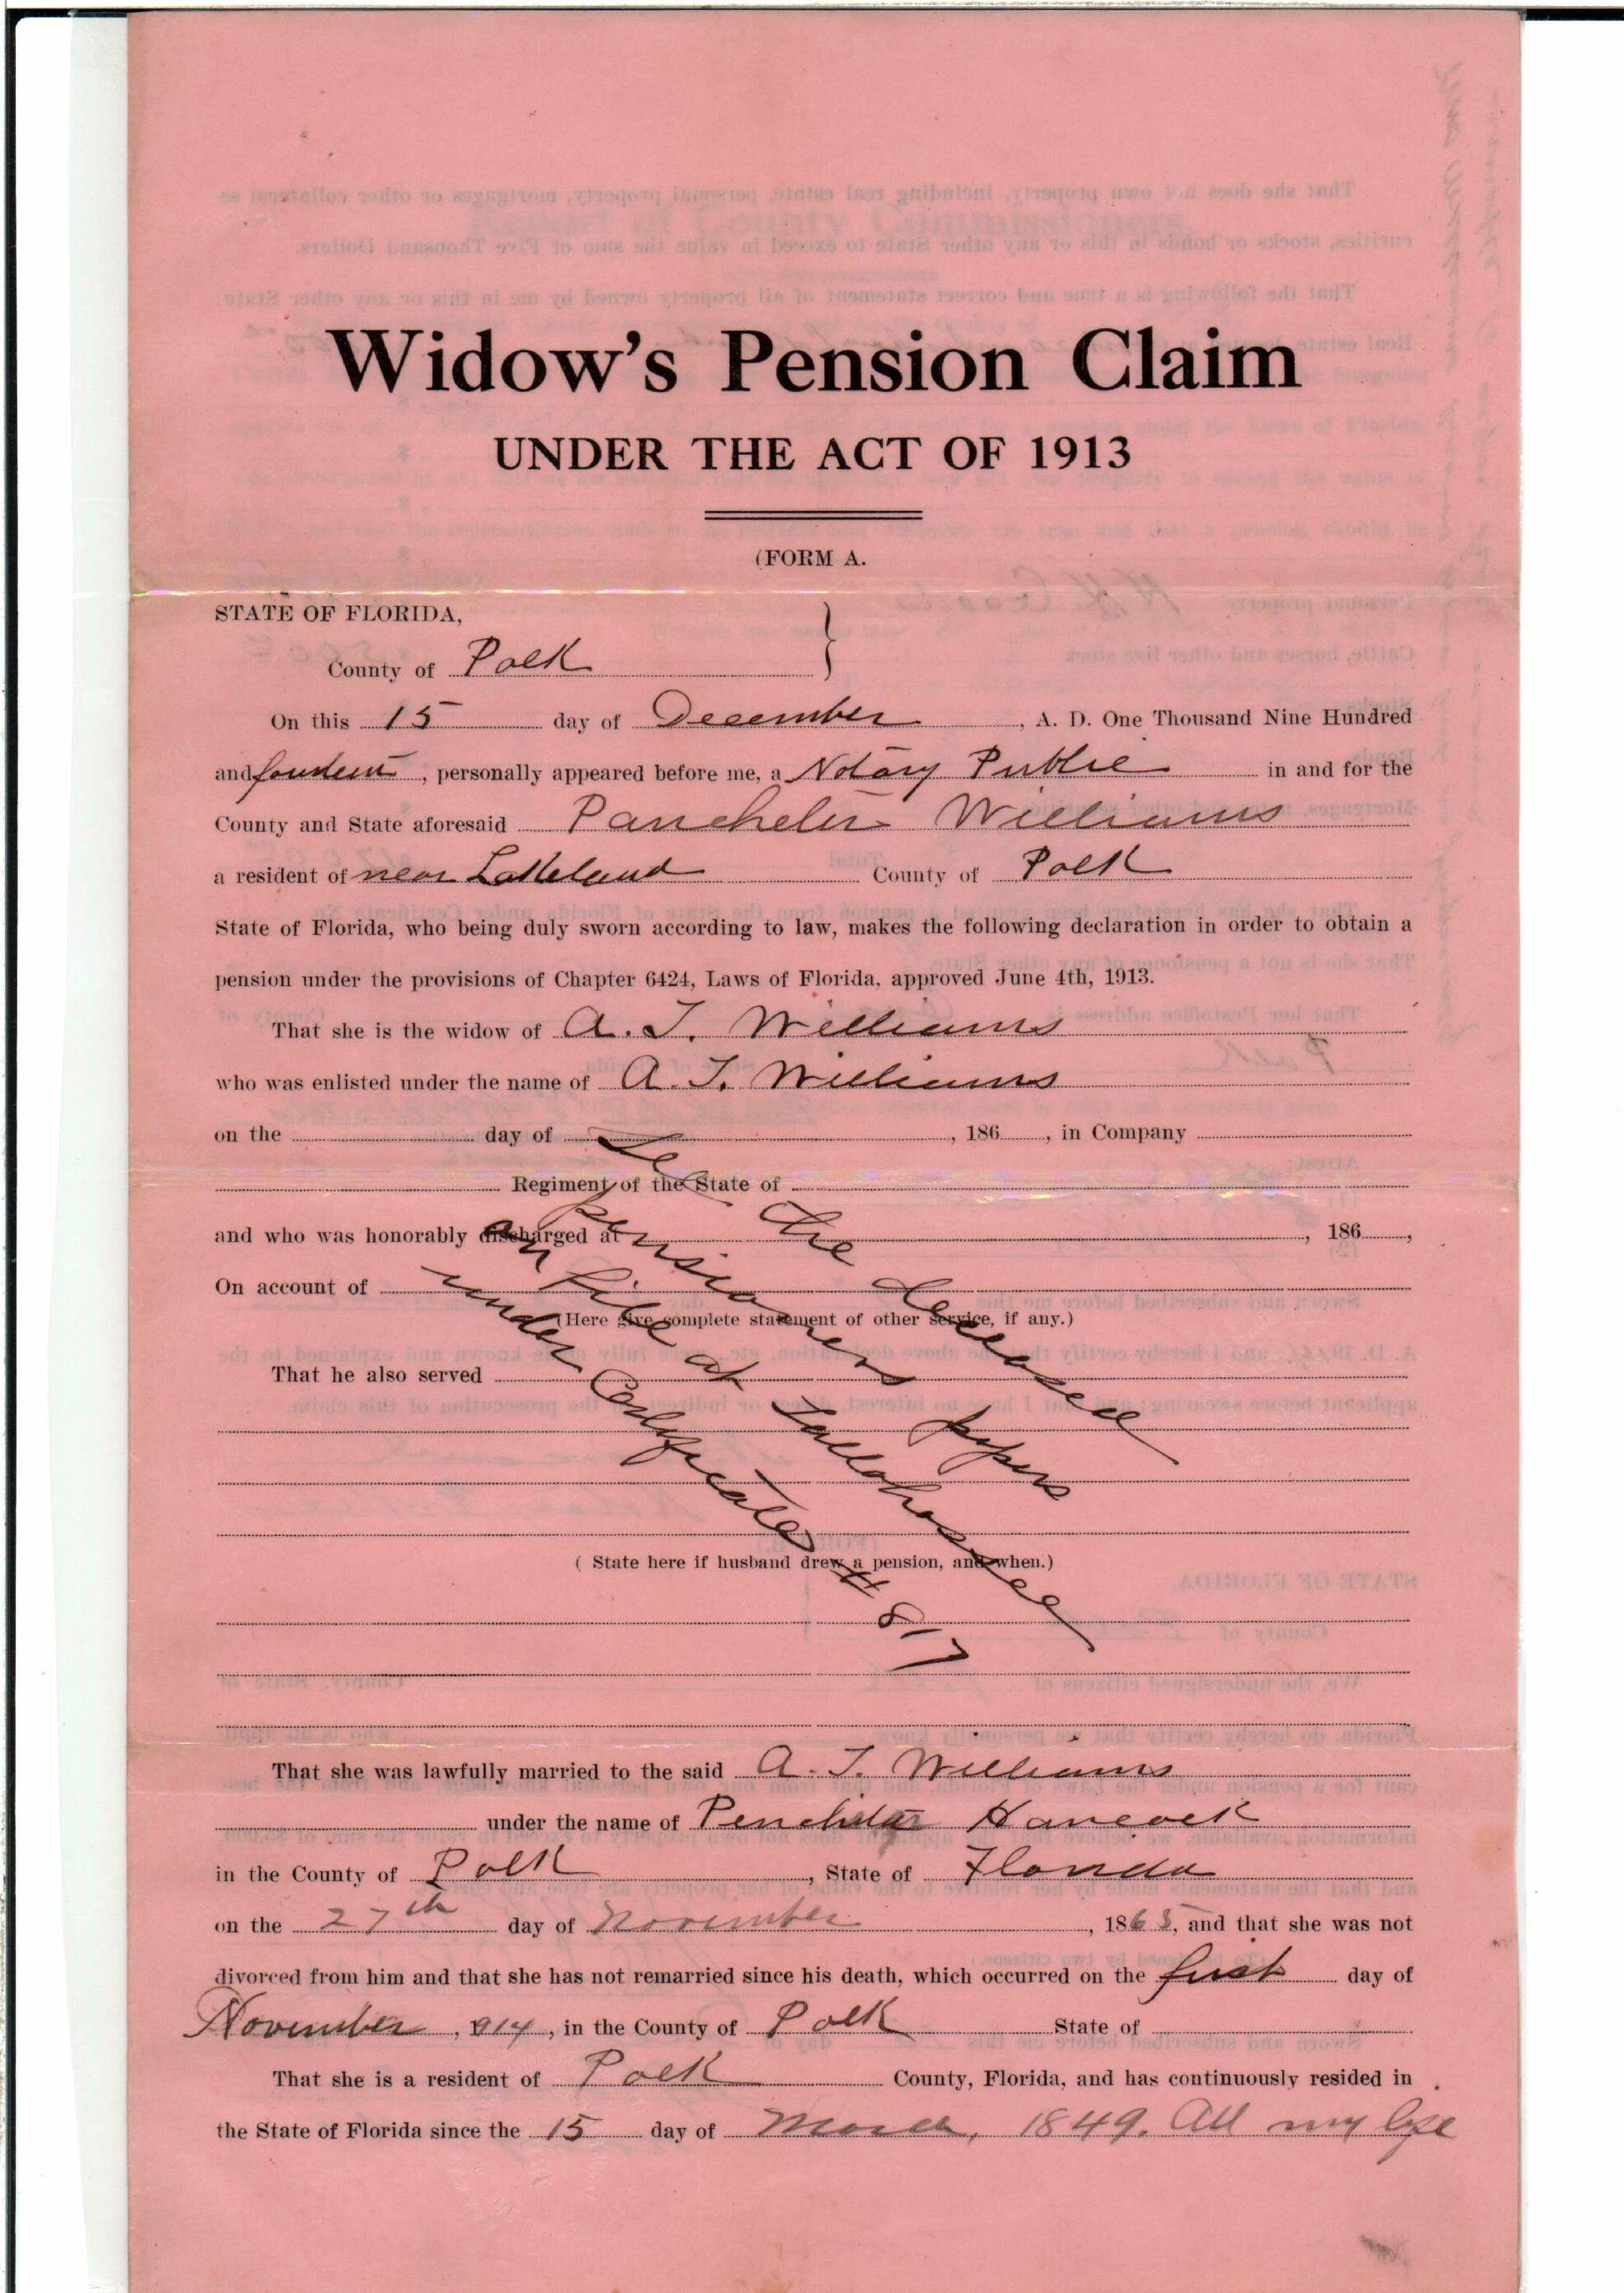 Widow's Pension Claim
UNDER THE ACT OF 1913
(FORM A.
STATE OF FLORIDA,
County of Polk
On this 15 day of December, A. D. One Thousand Nine Hundred
and fourteen, personally appeared before me, a Notary Public in and for the
County and State aforesaid Williams
a resident of near Lakeland County of Polk
State of Florida, who being duly sworn according to law, makes the following declaration in order to obtain a
pension under the provisions of Chapter 6424, Laws of Florida, approved June 4th, 1913.
That she is the widow of A. T. Williams
who was enlisted under the name of A. T. Williams
on the day of , 186 , in Company
Regiment of the State of
and who was honorably discharged at , 186 ,
On account of
(Here give complete statement of other service, if any.)
That he also served
See the deceased
pensioners papers
on file at Tallahassee
under Certificate # 817
( State here if husband drew a pension, and when.)
That she was lawfully married to the said A. T. Williams
under the name of Hancock
in the County of Polk, State of Florida
on the 27th day of November, 1865, and that she was not
divorced from him and that she has not remarried since his death, which occurred on the first day of
November, 1914, in the County of Polk State of
That she is a resident of Polk County, Florida, and has continuously resided in
the State of Florida since the 15 day of March, 1849. All my life